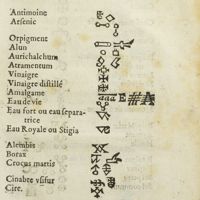 Antimoine
Arsenic
Orpigment
Alun
Aurichalchum
Atramentum
Vinaigre
Vinaigre distillé
Amalgame
Eau de vie
Eau fort ou eau separa-
trice
Eau Royale ou Stigia
Alembis
Borax
Crocus martis
Cinabre
Cire.